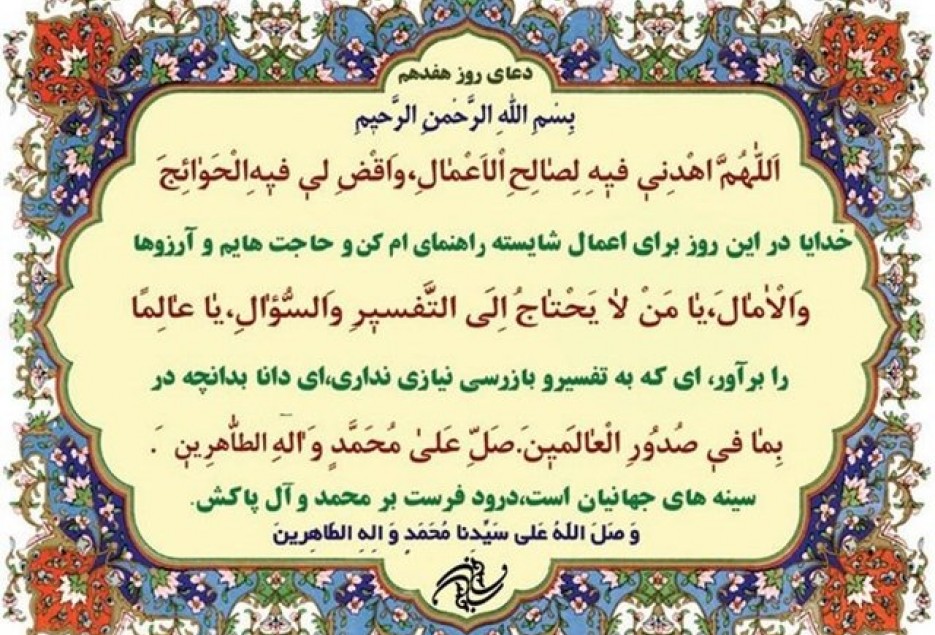 دعای روز هفدهم
بِسْمِ اللهِ الرَّحْمنِ الرَّحیمِ
اَللّٰهُمَّ اهْدِنی فیهِ لِصٰالِحِ الْاَعْمٰالِ،وَاقْضِ لی فیهِ الْحَوٰائِجَ
خدایا در این روز برای اعمال شایسته راهنمای ام کن و حاجت هایم و آرزوها
وَالْاٰمٰالَ،یٰا مَنْ لاٰ یَحْتٰاجُ اِلَی التَّفسیرِ وَالسُّؤٰالِ،یٰا عٰالِمًا
را برآور، ای که به تفسیرو بازرسی نیازی نداری،ای دانا بدانچه در
بِمٰا فی صُدُورِ الْعٰالَمینَ.صَلِّ عَلیٰ مُحَمَّدٍ وَ اٰلِهِ الطّٰاهِرینَ .
سینه های جهانیان است،درود فرست بر محمد و آل پاکش.
وَ صَلَ اللهُ عَلی سَیِّدِنا مُحَمَدٍ وَ الِهِ الطّاهِرینَ